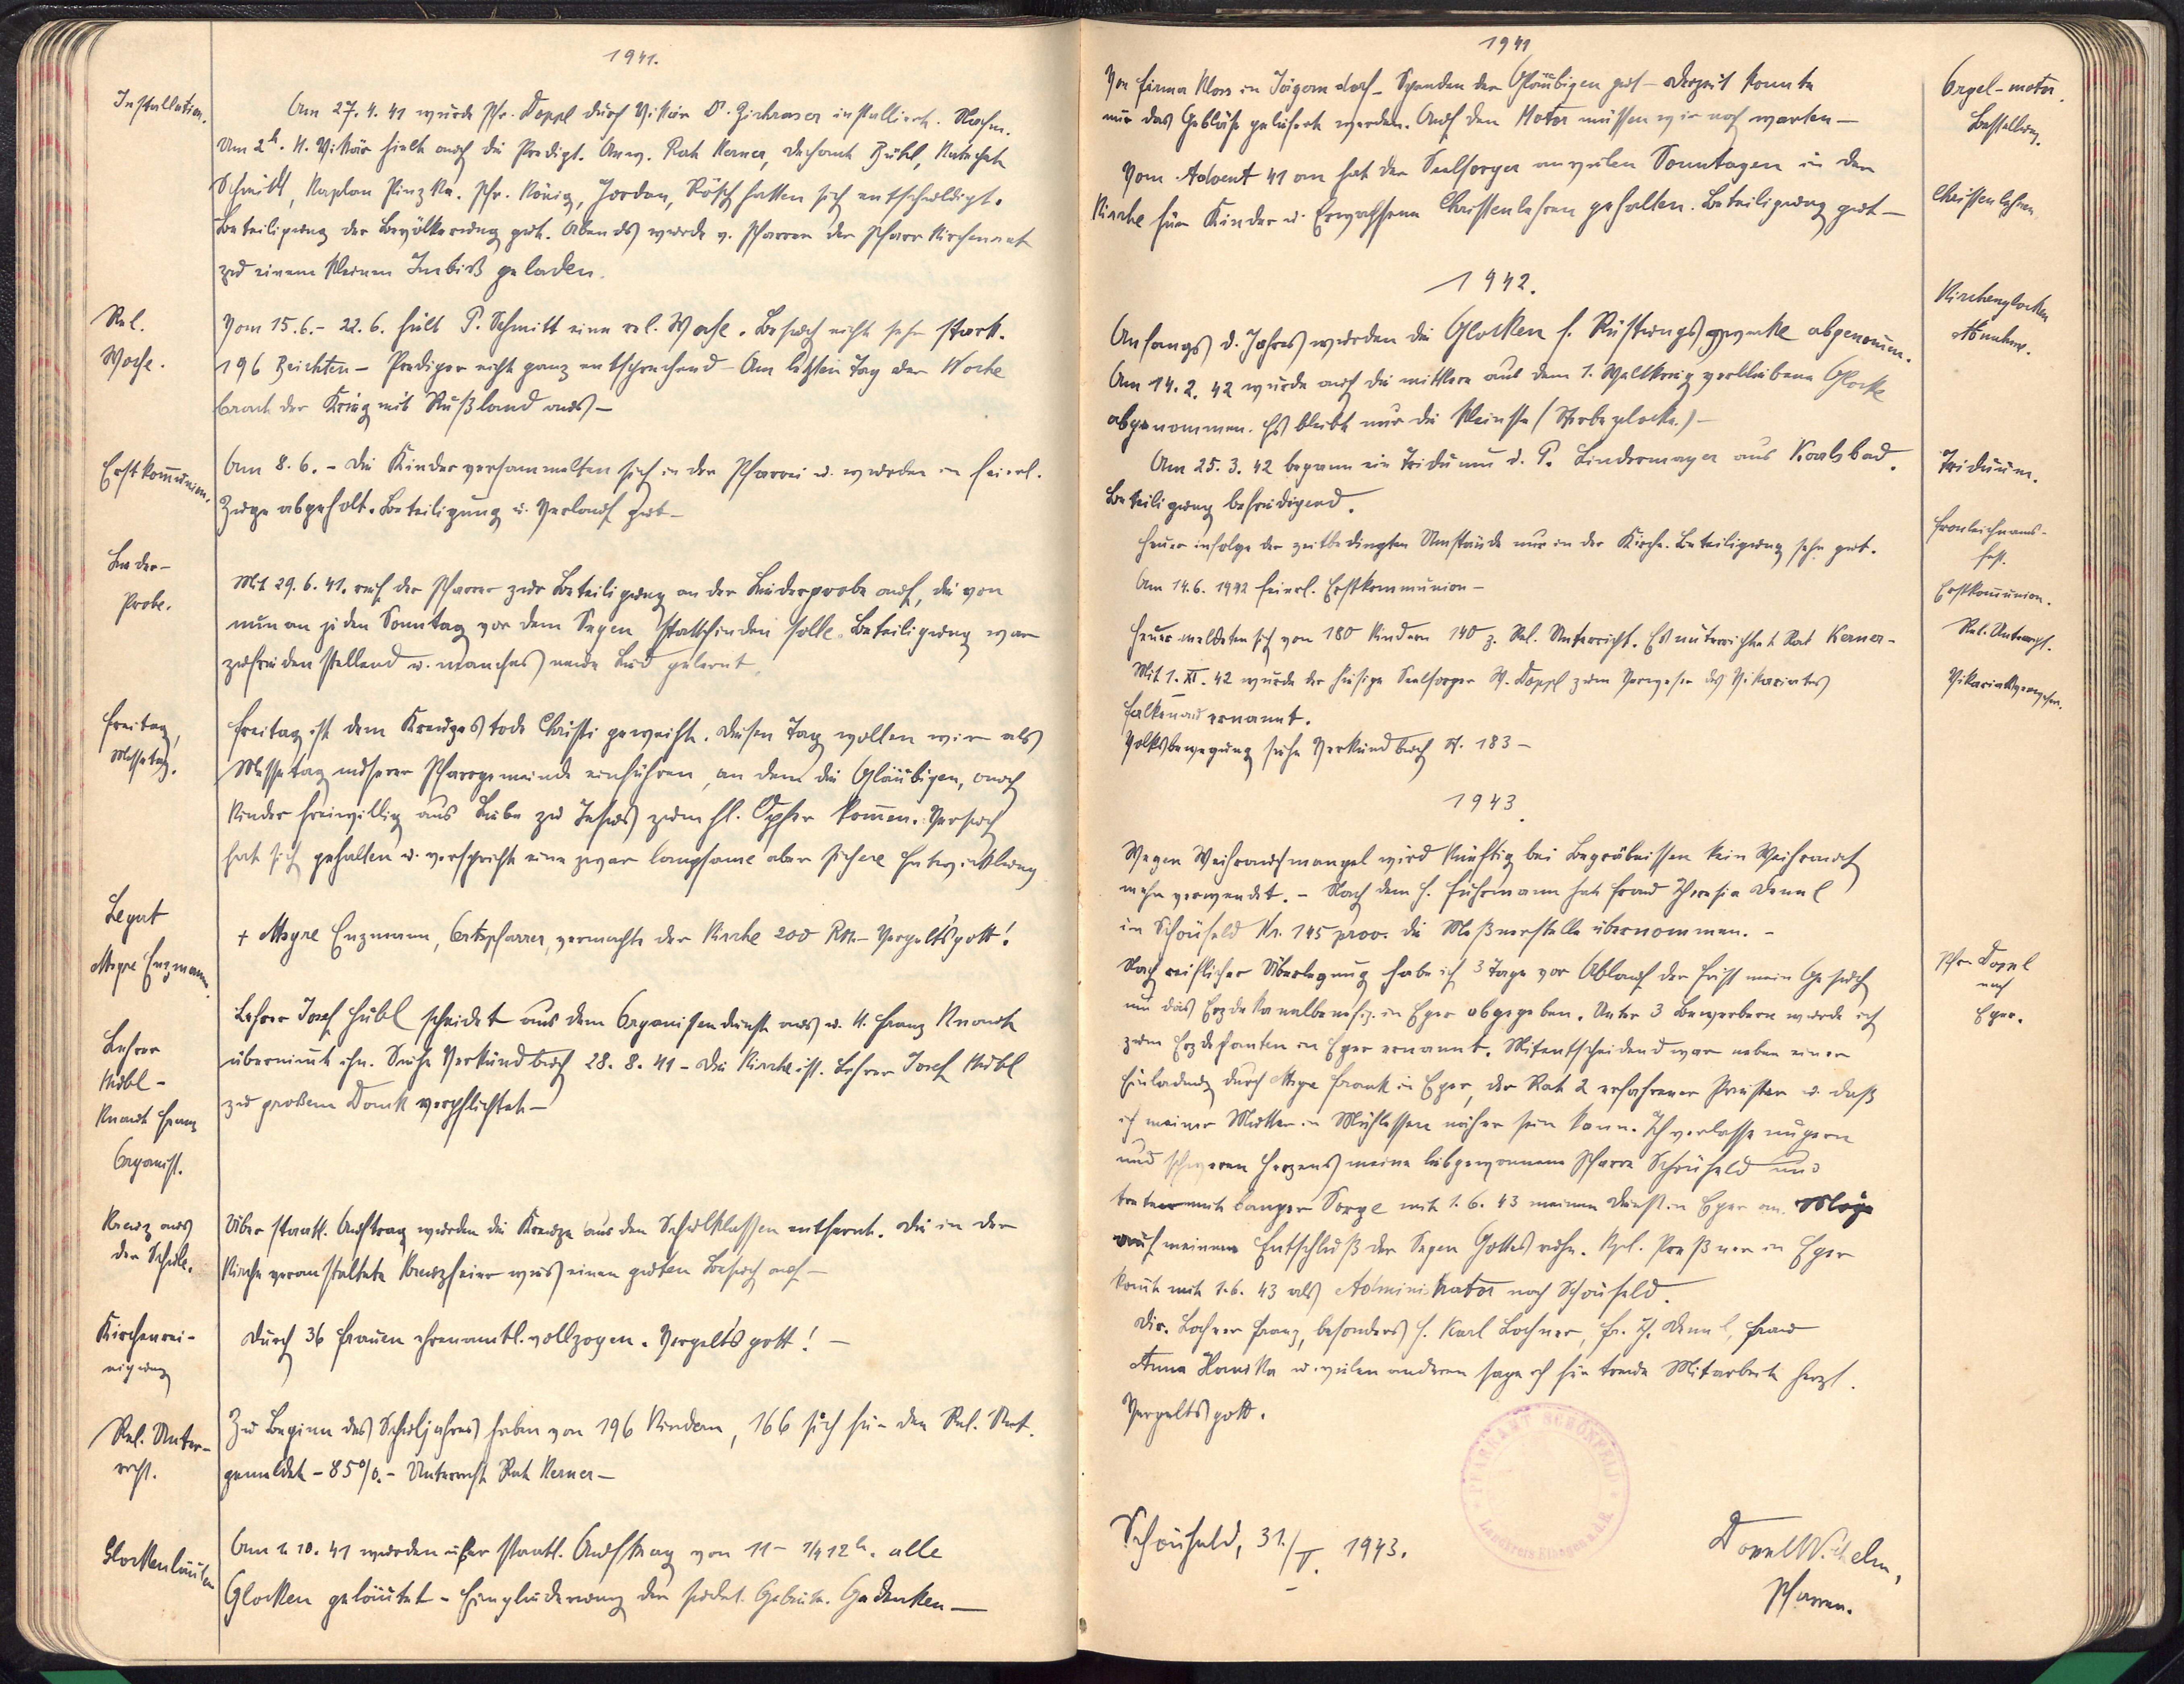 1941.
Installation.
Am 27.4.41 wurde Pfr. Doppl durch Vikär installiert. Nachm.
Um 2h. H. Vikär hielt auch die Predigt. Anw. Rat Kerner, Dechant Zühl, Katechet
Schmidt, Kaplan Pinzka. Pfr. König, Jordan, Rösch hatten sich entschuldigt.
Beteiligung der Bevölkerung gut. Abends wurde v. Pfarrer der Pfarrkirchenrat
zu einem kleinen Imbiß geladen.
Rel.
Woche.
Vom 15.6.- 22.6. hielt P. Schmitt eine rel. Woche. Besuch nicht sehr stark.
196 Beichten - Prediger nicht ganz entsprechend - Am letzten Tag der Woche
brach der Krieg mit Rußland aus -
Erstkommunion.
Am 8.6. - Die Kinder versammelten sich in der Pfarrei u. wurden in feierl.
Zuge abgeholt. Beteiligung u. Verlauf gut -
Lieder-
Probe.
Mit 29.6.41. rief der Pfarrer zur Beteiligung an der Liederprobe auf, die von
nun an jeden Sonntag vor dem Segen stattfinden solle. Beteiligung war
zufriedenstellend u. manches neue Lied gelernt.
Freitag,
Messetag.
Freitag ist dem Kreuzestode Christi geweiht. Diesen Tag wollen wir als
Messetag unserer Pfarrgemeinde einführen, an dem die Gläubigen, auch
Kinder freiwillig aus Liebe zu Jesus zum hl. Opfer kommen. Versuch
hat sich gehalten u. verspricht eine zwar langsame aber sichere Entwicklung
Legat
Msgre Enzmann.
+ Msgre Enzmann, Ortspfarrer, vermachte der Kirche 200 Rm - Vergeltsgott!
Lehrer
Hübl -
Knaut Franz
Organist.
Lehrer Josef Hübl scheidet aus dem Organistendienst aus u. H. Franz Knaut
übernimmt ihn. Siehe Verkündbuch 28.8.41 - Die Kirche ist Lehrer Josef Hübl
zu großem Dank verpflichtet -
Kreuz aus
der Schule.
Über staatl. Auftrag wurden die Kreuze aus den Schulklassen entfernt. Die in der
Kirche veranstaltete Kreuzfeier wies einen guten Besuch auf -
Kirchenrei-
nigung
Durch 36 Frauen ehrenamtl. vollzogen. Vergelts gott! -
Rel. Unter-
richt.
Zu Beginn des Schuljahres haben von 196 Kindern, 166 sich für den Rel. Unt.
gemeldet - 85%. - Unterricht Rat Kerner -
Glockenläuten
Am 1.10.41 wurden über staatl. Auftrag von 11 - 1/4 12h. alle
Glocken geläutet - Eingliederung der sudet. Gebiete. Gedenken -
1941
Von Firma Kloss in Jägerndorf - Spenden der Gläubigen gut - Derzeit konnte
nur das Gebläse geliefert werden. Auf den Motor müssen wir noch warten -
Orgel-motor.
Bestellung.
Vom Advent 41 an hat der Seelsorger an vielen Sonntagen in der
Kirche für Kinder u. Erwachsene Christenlehren gehalten. Beteiligung gut -
Christenlehren
1942.
Kirchenglocken
Abnahme.
Anfangs d. Jahres wurden die Glocken f. Rüstungszwecke abgenommen.
Am 14.2.42 wurde auch die mittlere aus dem 1. Weltkrieg verbliebene Glocke
abgenommen. Es bleibt nur die kleinste (Sterbeglocke.) -
Am 25.3.42 begann ein Triduum d. P. Lindermayer aus Karlsbad.
Beteiligung befriedigend.
Triduum.
Heuer infolge der zeitbedingten Umstände nur in der Kirche. Beteiligung sehr gut.
Fronleichnams-
fest.
Am 14.6.1942 feierl. Erstkommunion -
Erstkommunion.
Heuer meldeten sich von 180 Kindern 140 z. Rel. Unterricht. Es unterrichtet Rat Kerner -
Rel. Unterricht.
Mit 1.XI.42 wurde der hiesige Seelsorger W. Doppl zum Verweser des Vikariates
Falkenau ernannt.
Vikariatsverweser.
Volksbewegung siehe Verkündbuch S. 183 -
1943.
Wegen Weihrauchmangel wird künftig bei Begräbnissen kein Weihrauch
mehr verwendet. - Nach dem H. Fuhrmann hat Frau Theresia
in Schönfeld Nr. 145 prov. die Meßnerstelle übernommen. -
Nach reiflicher Überlegung habe ich 3 Tage vor Ablauf der Frist mein Gesuch
um das Erzdekanalbenefiz. in Eger abgegeben. Unter 3 Bewerbern wurde ich
zum Erzdechanten in Eger ernannt. Mitentscheidend war neben einer
Einladung durch Msgre Frank in Eger, der Rat 2 erfahrener Priester u. daß
ich meiner Mutter in Mühlessen näher sein kann. Ich verlasse ungern
und schweren Herzens meine liebgewonnene Pfarre Schönfeld und
trete mit banger Sorge mit 1.6.43 meinen Dienst in Eger an. Möge
auf meinem Entschluß der Segen Gottes ruhn. Kpl. Preßner in Eger
kommt mit 1.6.43 als Administrator nach Schönfeld.
Pfr. Doppl
nach
Eger.
Dir. Lochner Franz, besonders H. Karl Lochner, Fr. Th. , Frau
Anna Hanika u. vielen anderen sage ich für treue Mitarbeit herzl.
Vergeltsgott.
PFARRAMT SCHÖNFELD
Landkreis Elbogen a.d.E.
Schönfeld, 31./V. 1943.
Doppl Wilhelm,
Pfarrer.